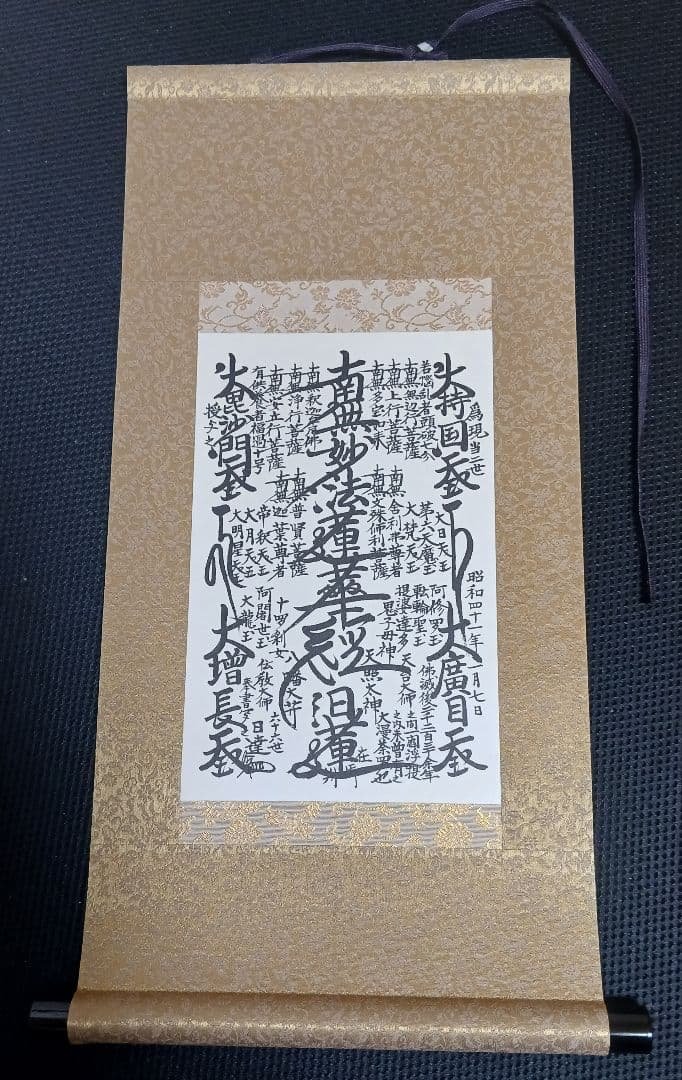 為現当二世
大持国天王
大廣目天王
昭和四十一年一月七日
若悩乱者頭破七分
南無無辺行菩薩
南無上行菩薩
南無多宝如来
南無妙法蓮華経
日蓮
在
南無釈迦牟尼佛
南無浄行菩薩
南無安立行菩薩
有供養者福過十号
大毘沙門天王
授与之
大日天王
第六天魔王
大梵天王
南無舎利弗尊者
南無文殊師利菩薩
南無普賢菩薩
南無迦葉尊者
帝釈天王
大月天王
大明星天王
阿修羅王
転輪聖王
提婆達多
鬼子母神
十羅刹女
阿闍世王
大龍王
天台大師
天照太神
八幡大菩薩
伝教大師
佛滅後二千二百三十余年
之間一閻浮提
之内未曾有之
大漫荼羅也
六十六世
日達
奉書写之
大增長天王